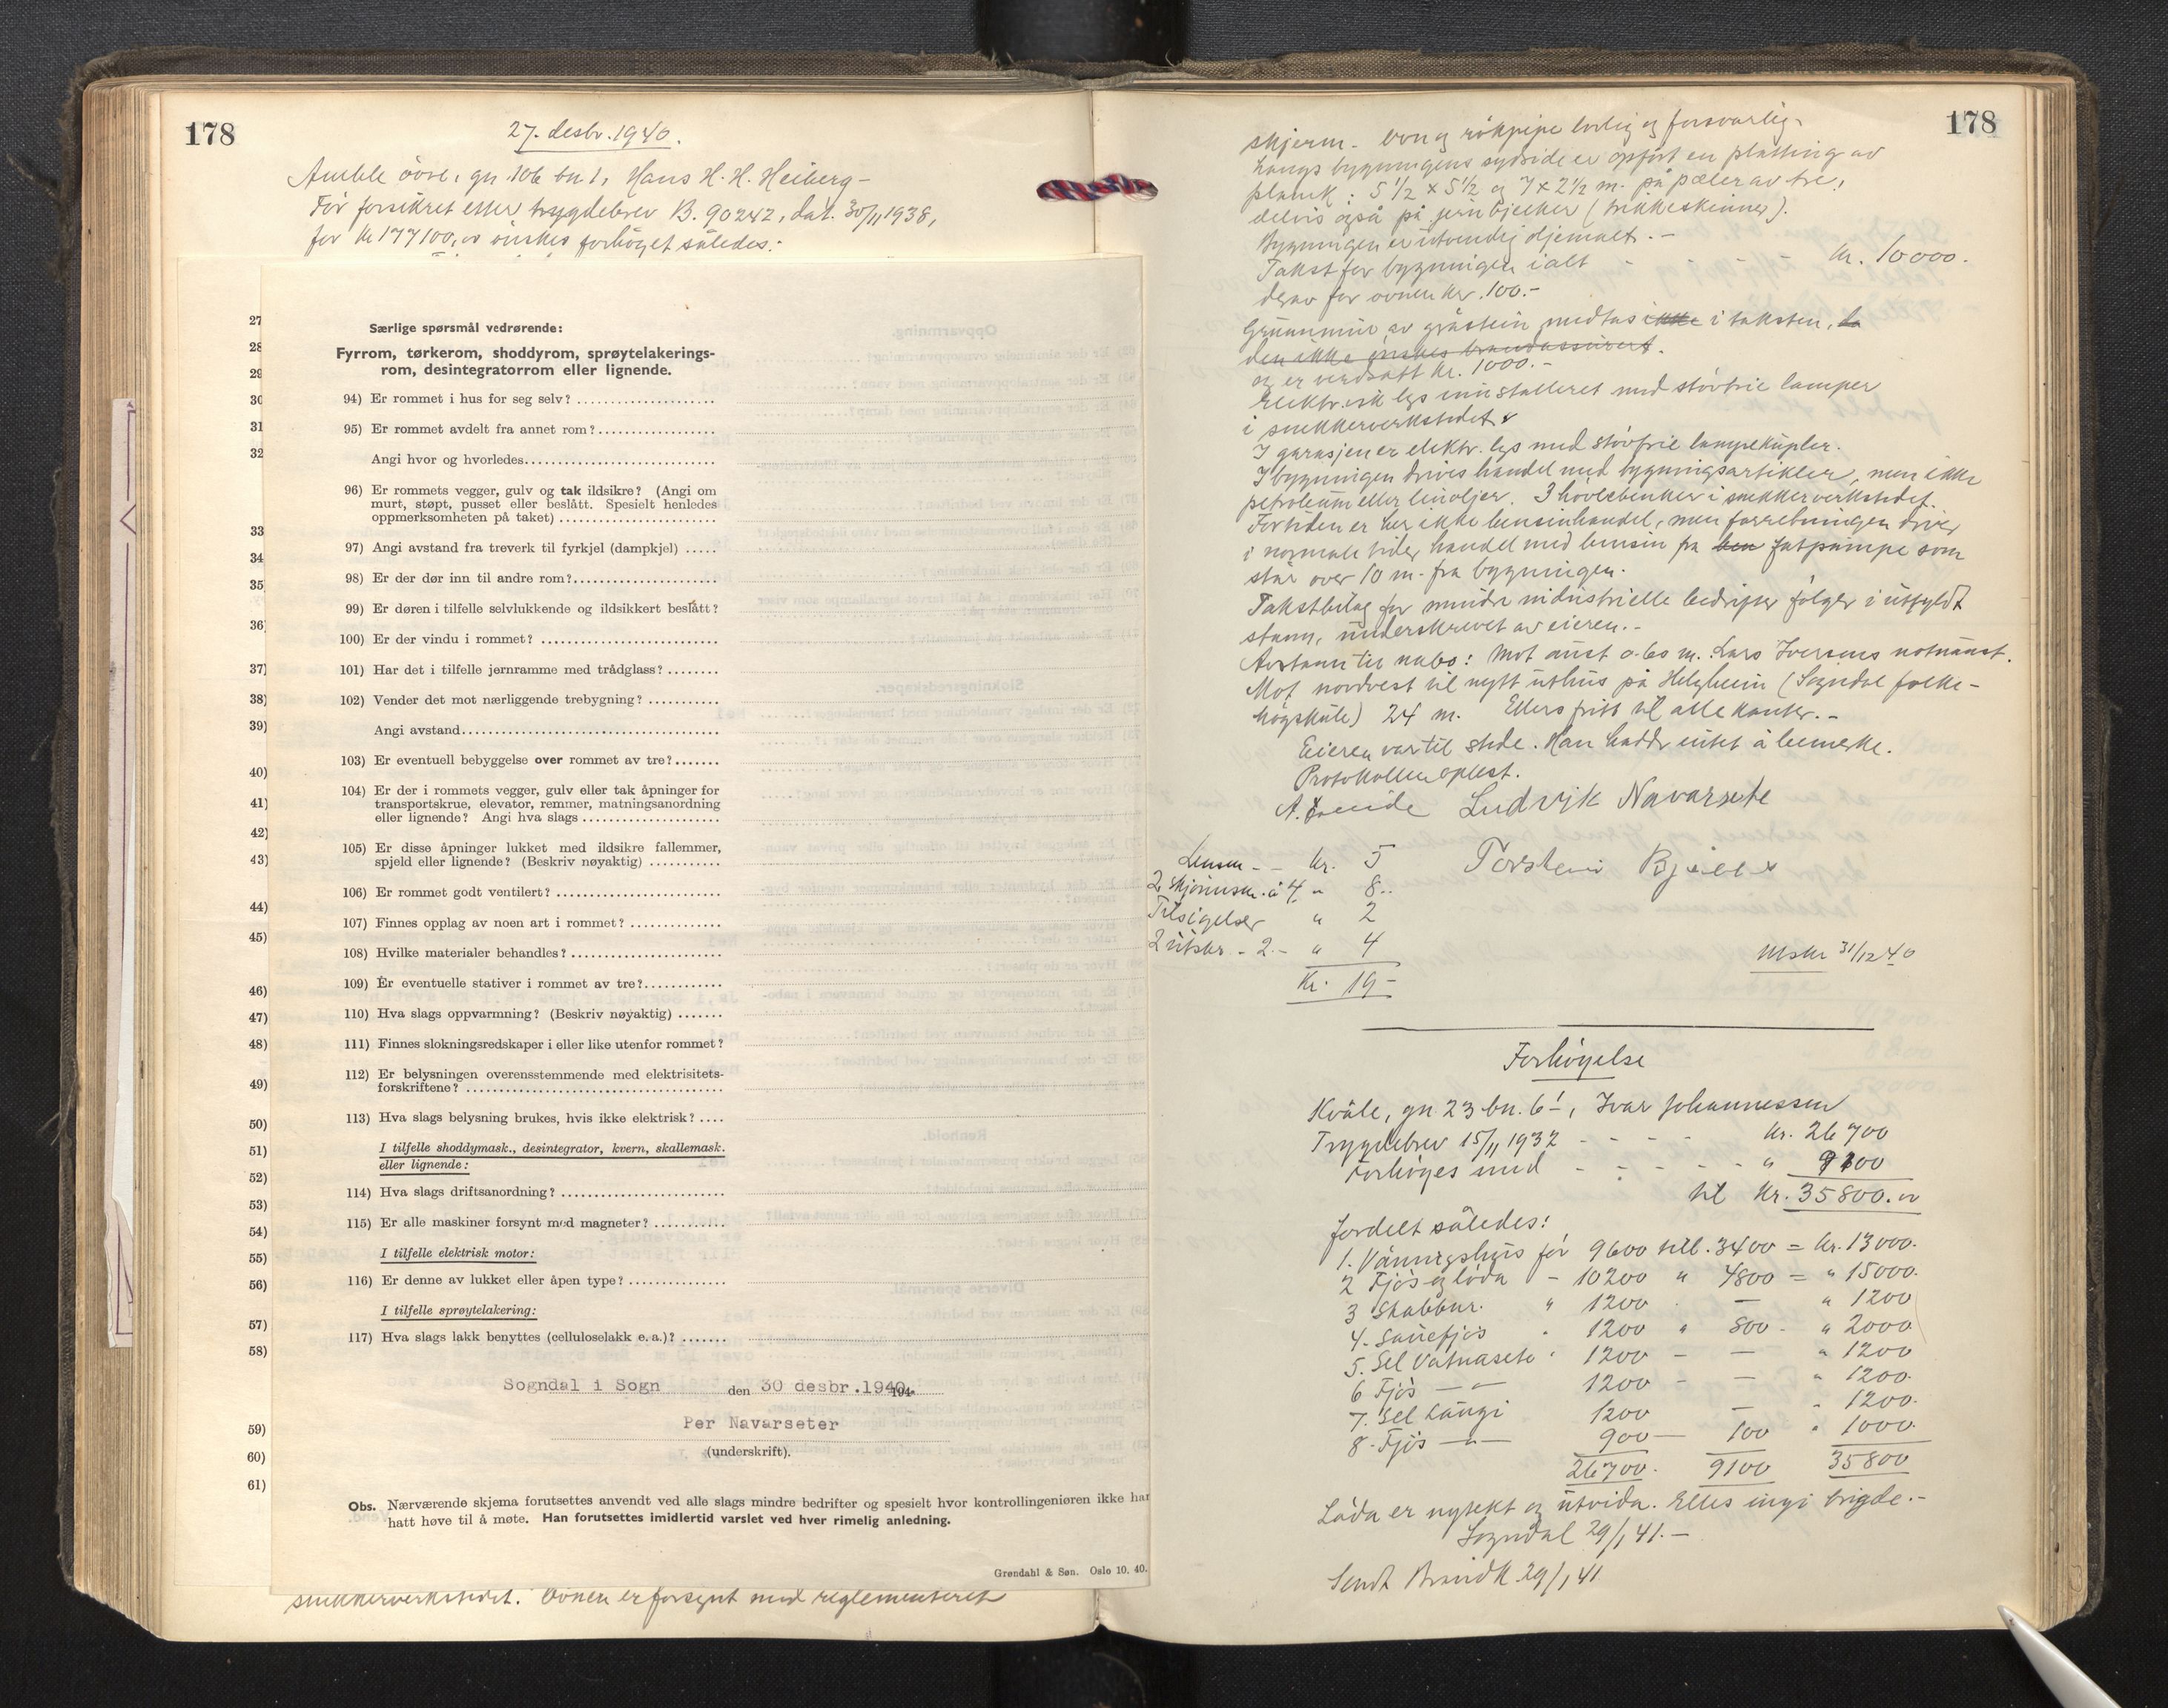 178
27. desbr. 1940.
Amble övre, gn. 106 bn. 1, Hans H. H. Heiberg -
Før forsikret etter trygdebrev B. 90242, dat. 30/11 1938,
for kr 177100,00 ønskes forhöget således:
27
28
29
30
31
32
33
34
35
36
37)
38)
39)
40)
41)
42)
43)
44)
45)
46)
47)
48)
49)
50)
51)
52)
53)
54)
55)
56)
57)
58)
59)
60)
61)
Særlige spørsmål vedrørende:
Fyrrom, tørkerom, shoddyrom, sprøytelakerings-
rom, desintegratorrom eller lignende.
94) Er rommet i hus for seg selv?
95) Er rommet avdelt fra annet rom?
Angi hvor og hvorledes
96) Er rommets vegger, gulv og tak ildsikre? (Angi om
murt, støpt, pusset eller beslått. Spesielt henledes
oppmerksomheten på taket)
97) Angi avstand fra treverk til fyrkjel (dampkjel)
98) Er der dør inn til andre rom?
99) Er døren i tilfelle selvlukkende og ildsikkert beslått?
100) Er der vindu i rommet?
101) Har det i tilfelle jernramme med trådglass?
102) Vender det mot nærliggende trebygning?
Angi avstand
103) Er eventuell bebyggelse over rommet av tre?
104) Er der i rommets vegger, gulv eller tak åpninger for
transportskrue, elevator, remmer, matningsanordning
eller lignende? Angi hva slags
105) Er disse åpninger lukket med ildsikre fallemmer,
spjeld eller lignende? (Beskriv nøyaktig)
106) Er rommet godt ventilert?
107) Finnes opplag av noen art i rommet?
108) Hvilke materialer behandles?
109) Er eventuelle stativer i rommet av tre?
110) Hva slags oppvarmning? (Beskriv nøyaktig)
111) Finnes slokningsredskaper i eller like utenfor rommet?
112) Er belysningen overensstemmende med elektrisitets-
forskriftene?
113) Hva slags belysning brukes, hvis ikke elektrisk?
I tilfelle shoddymask., desintegrator, kvern, skallemask.
eller lignende:
114) Hva slags driftsanordning?
115) Er alle maskiner forsynt med magneter?
I tilfelle elektrisk motor:
116) Er denne av lukket eller åpen type?
I tilfelle sprøytelakering:
117) Hva slags lakk benyttes (celluloselakk e. a.)?
Sogndal i Sogn den 30 desbr. 1940. 194
Per Navarseter
(underskrift).
Obs. Nærværende skjema forutsettes anvendt ved alle slags mindre bedrifter og spesielt hvor kontrollingeniøren ikke har
hatt høve til å møte. Han forutsettes imidlertid varslet ved hver rimelig anledning.
Grøndahl & Søn. Oslo 10. 40.
snekkerverkstedet. Ovnen er forsynt med reglementeret
178
skjerm. Ovn og rökpipe lovlig og forsvarlig.
Langs bygningens sydside er opfört en platting av
plank: 5 1/2 x 5 1/2 og 7 x 2 1/2 m. på pæler av tre,
delvis også på jernbjelker (trikkeskinner).
Bygningen er utvendig oljemalt. -
Takst for bygningen ialt - - - - kr. 10000.
derav for ovnen kr. 100.-
Grunnmur av gråstein medtas ikke i taksten, da
den ikke ønskes brandassurert.
og er verdsatt kr. 1000.-
Elektrisk lys innstalleret med støvfrie lamper
i snekkerverkstedet.
I garasjen er elektr. lys med stövfrie lampekupler.
I bygningen drives handel med bygningsartikler, men ikke
petroleum eller linoljer. 3 hövlebenker i snekkerverkstedet.
For tiden er her ikke bensinhandel, men forretningen driver
i normale tider handel med bensin fra ben fatpumpe som
står over 10 m. fra bygningen.
Takstbilag for mindre industrielle bedrifter følger i utfyldt
stann, underskrevet av eieren.-
Avstann til nabo: Mot aust o. 60 m. Lars Iversens notnaust.
Mot nordvest til nytt uthus på Helgheim (Sogndal folke-
högskule) 24 m. Ellers fritt til alle kanter. -
Eieren var til stede. Han hadde intet å bemerke.
Protokollen oplest.
Ludvik Navarsete
Lensm. - - kr. 5
2 skjönnsm. à 4 " 8..
Tilsigelser " 2
2 utskr. - 2.- " 4
Kr. 19-
Torstein
Utskr 31/12 40
Forhögelse
Kvåle, gn. 23 bn. 6!, Ivar Johannessen
Trygdebrev 15/11 1932 - - - - kr. 26700
Forhöges med - - - - - " 9100
til kr. 35800.00
fordelt således:
1. Våningshus för 9600 till. 3400 = kr. 13000.
2 Fjös og löda - 10200 " 4800 = " 15000.
3 Stabbur. " 1200 - " 1200
4. Sauefjös . 1200 " 800 - " 2000
5. Sel Vatnasete " 1200 - — " 1200
6 Fjös — " — 1200 - — " 1200.
7. Sel Langi 1200 — " 1200.
8. Fjös — " — 900 — 100 " 1000.
26700. 9100 35800
Löda er nytekt og utvida. Elles ingi brigde. -
Sogndal 29/1 41.-
Sendt Brandk. 29/1 41